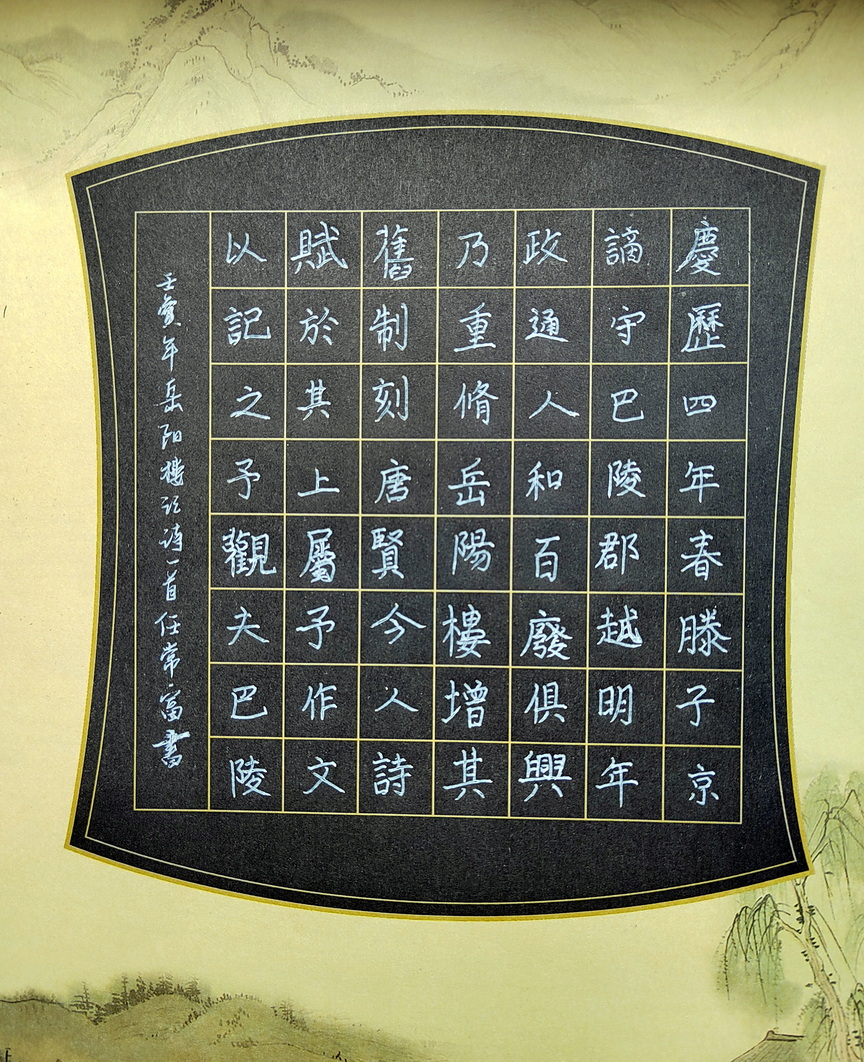 慶歷四年春滕子京
謫守巴陵郡越明年
政通人和百廢俱興
乃重脩岳陽樓增其
舊制刻唐賢今人詩
賦於其上屬予作文
以記之予觀夫巴陵
壬寅年岳阳樓记诗一首任常富書